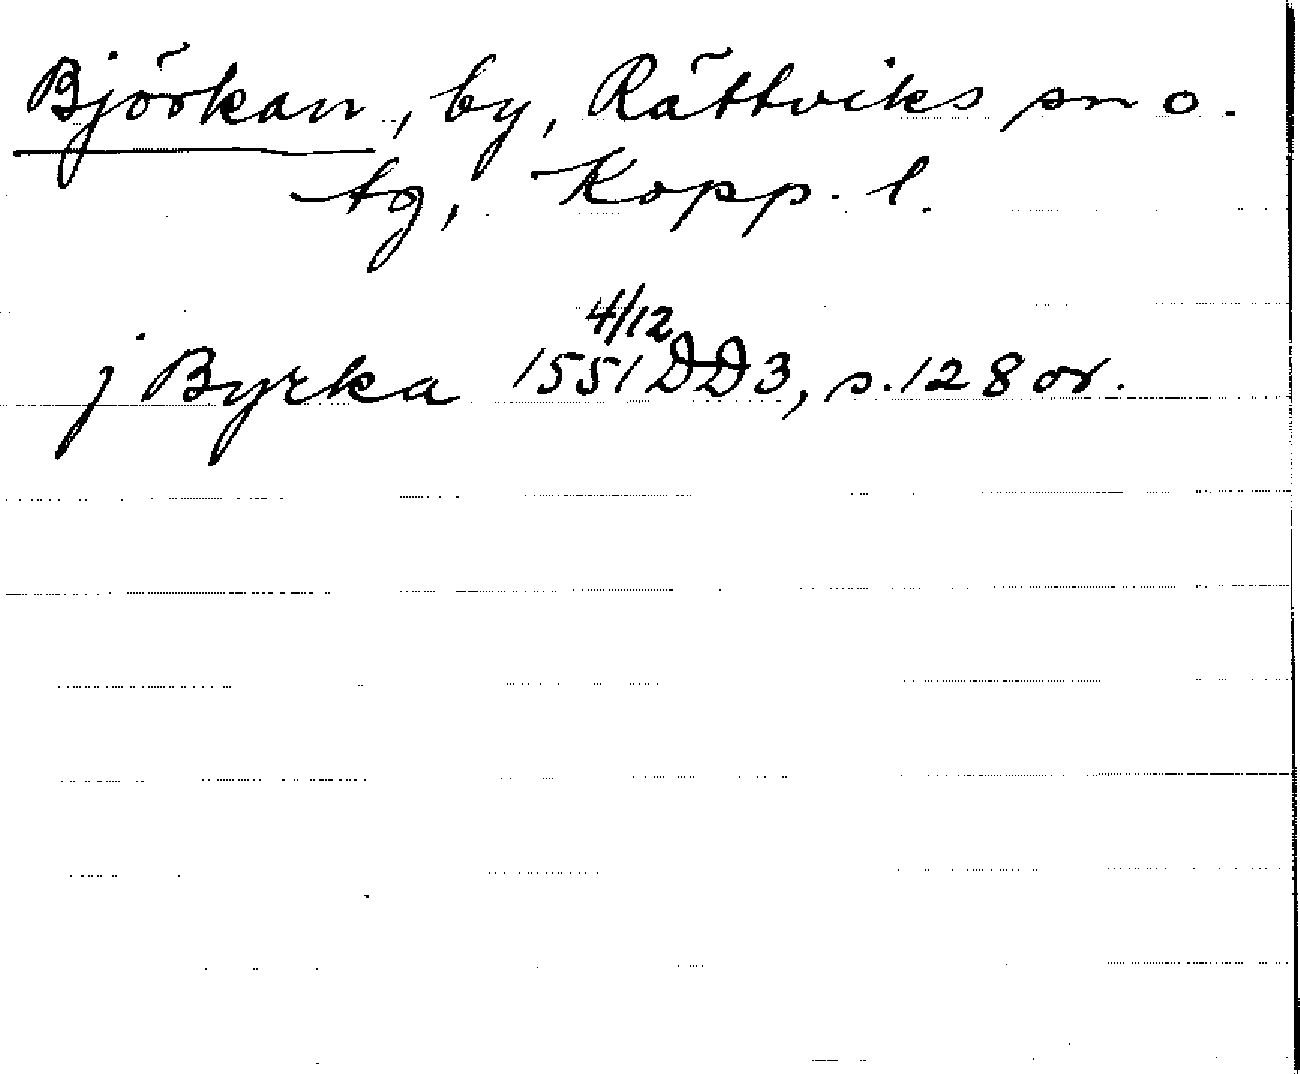 Björkan, by, Rättviks sn o.
tg, Kopp. l.
4/12
j Byrka 1551 DD3, s. 128 or.